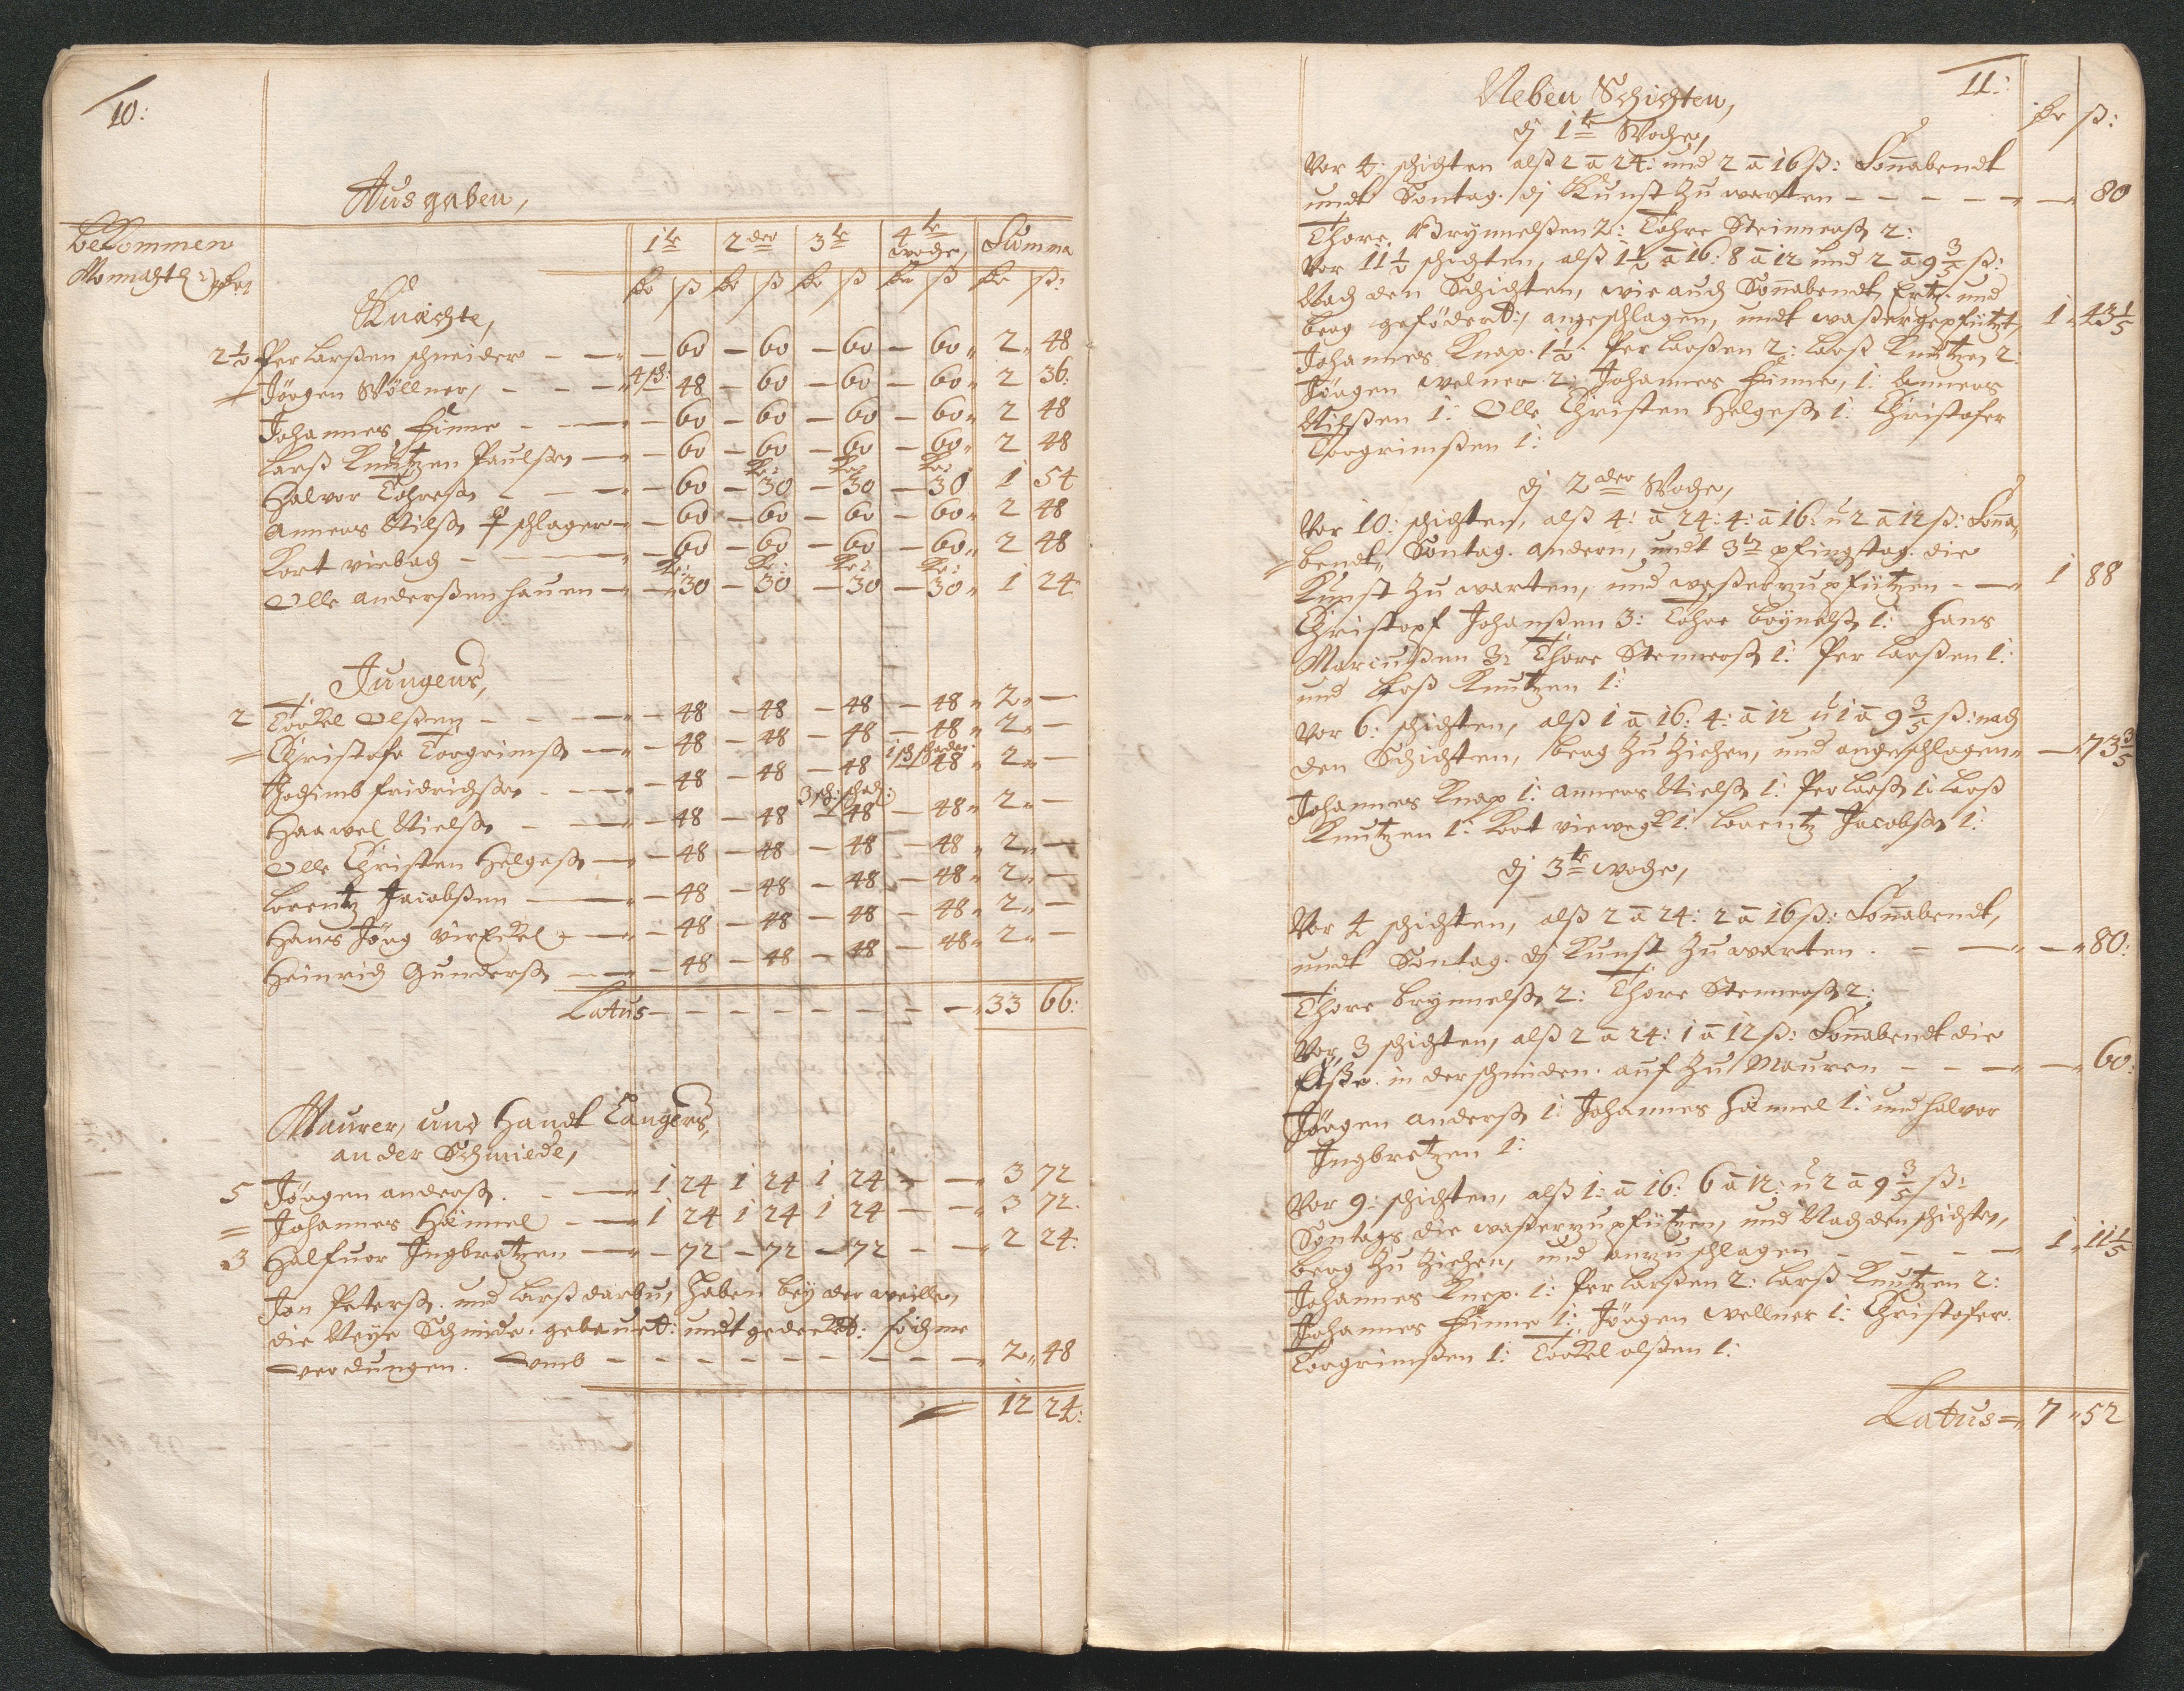 10:
Ausgaben,
bekommen
Monnaht
1te 2der 3te 4te woche, Summa
Knächte,
2½ Per Larßen schneider — — 60 — 60 — 60 — 60 „ 2 „ 48
Jörgen Wöllner, 4 sch: 48 — 60 — 60 — 60 „ 2 36:
Johannes Finne — — 60 — 60 — 60 — 60 „ 2 48
Larß Knutzen Paulß — — 60 — 60 — 60 — 60 „ 2 48
Halvor Tohreß — — 60 — 30 — 30 — 30 1 54
Anners Nilß schlager — — 60 — 60 — 60 — 60 „ 2 48
Kort viebach — — 60 — 60 — 60 — 60 „ 2 48
Olle Anderßen hauen — — 30 — 30 — 30 — 30 „ 1 24
Jungens,
2 Torkel Olßen — — 48 — 48 — 48 — 48 „ 2 „ —
Christofr Torgrimß — — 48 — 48 — 48 — 48 „ 2 „ —
Jochimb fridrichß — — 48 — 48 — 48 48 „ 2 „ —
Haawel Nielß — — 48 — 48 — 48 — 48 „ 2 „ —
Olle Christen Helgeß — — 48 — 48 — 48 — 48 „ 2 „ —
Lorentz Jacobßen — — 48 — 48 — 48 — 48 „ 2 „ —
Hans Jörg — — 48 — 48 — 48 — 48 „ 2 „ —
Heinrich Gunderß — — 48 — 48 — 48 — 48 „ 2 „ —
Latus — — — — — — — — 33 66:
Maurer, und Handt Langers,
an der Schmiede,
5 Jörgen Anderß. — — 1 24 1 24 1 24 — — 3 72
Johannes Hämmel — — 1 24 1 24 1 24 — — 3 72.
3 Halfuor Ingbretzen — — 72 — 72 — 72 — — 2 24:
Jon Peterß. und Larß darbu, haben bey der weille,
die Neye Schmide. gebauet: undt gedecket:
verdungen. vmb — — — — — — — — 2 „ 48
12 24:
11:
Neben Schichten,
ß:
dj 1te Woche,
Vor 4. schichten alß 2 ā 24: und 2 ā 16 ß: Soñabendt
undt Sontag. dj Kunst zu warten — — — — — — 80
Thore. Brynnelßen 2: Tohre Steinerß 2:
Vor 11½ schichten, alß 1½ ā 16: 8 ā 12 und 2 ā 9 3/5 ß:
Nach den Schichten, wie auch Soñabendt, Ertz: und
berg gefödert: angeschlagen, undt waßer gepfützt, 1 „ 43 1/5
Johannes Knap. 1½. Per Larßen 2: Larß Knutzen 2:
Jörgen welner 2: Johannes Finne, 1: Anners
Nilßen 1: Olle Christen Helgeß 1: Christofer
Torgrimßen 1:
dj 2der Woche,
Vor 10: schichten, alß 4: ā 24: 4: ā 16: u 2 ā 12 ß: Soña„
bendt„ Sontag. andern, undt 3te pfingstag. die
Kunst zu warten, und waßer zu pfützen — — 1 88
Christopf Johanßen 3: Tohre brynelß 1: Hans
Marcußen 3: Thore Steinerß 1: Per Larßen 1:
und Larß Knutzen 1:
Vor 6: schichten, alß 1 ā 16: 4: ā 12 u 1 ā 9 3/5 ß: nach
den Schichten, berg zu ziehen, und angeschlagen „ — „ 73 3/5
Johannes Knap 1: Anners Nielß 1: Per Larß 1: Larß
Knutzen 1: Kort viewegk 1: Lorentz Jacobß 1:
dj 3te woche,
Vor 4 schichten, alß 2 ā 24: 2 ā 16 ß: Soñabendt,
undt Sontag. dj Kunst zu warten. — — „ — „ 80:
Thore brynnelß 2: Thore Steinerß 2:
Vor, 3 schichten, alß 2 ā 24: 1 ā 12 ß: Soñabendt die
Eße. in der schmiden. auf zu Mauren — — — — 60:
Jörgen Anderß 1: Johannes Hämmel 1: und Halvor
Ingbretzen 1:
Vor 9: schichten, alß 1: ā 16: 6 ā 12: u 2 ā 9 3/5 ß:
Sontags die waßer zu pfützen, und Nach den schichten,
berg zu ziehen, und anzuschlagen — — — — 1 „ 11 1/5
Johannes Knap. 1: Per Larßen 2: Larß Knutzen 2:
Johannes Finne 1: Jörgen wellner 1: Christofer.
Torgrimßen 1: Torkel olßen 1:
Latus — „ 7 „ 52